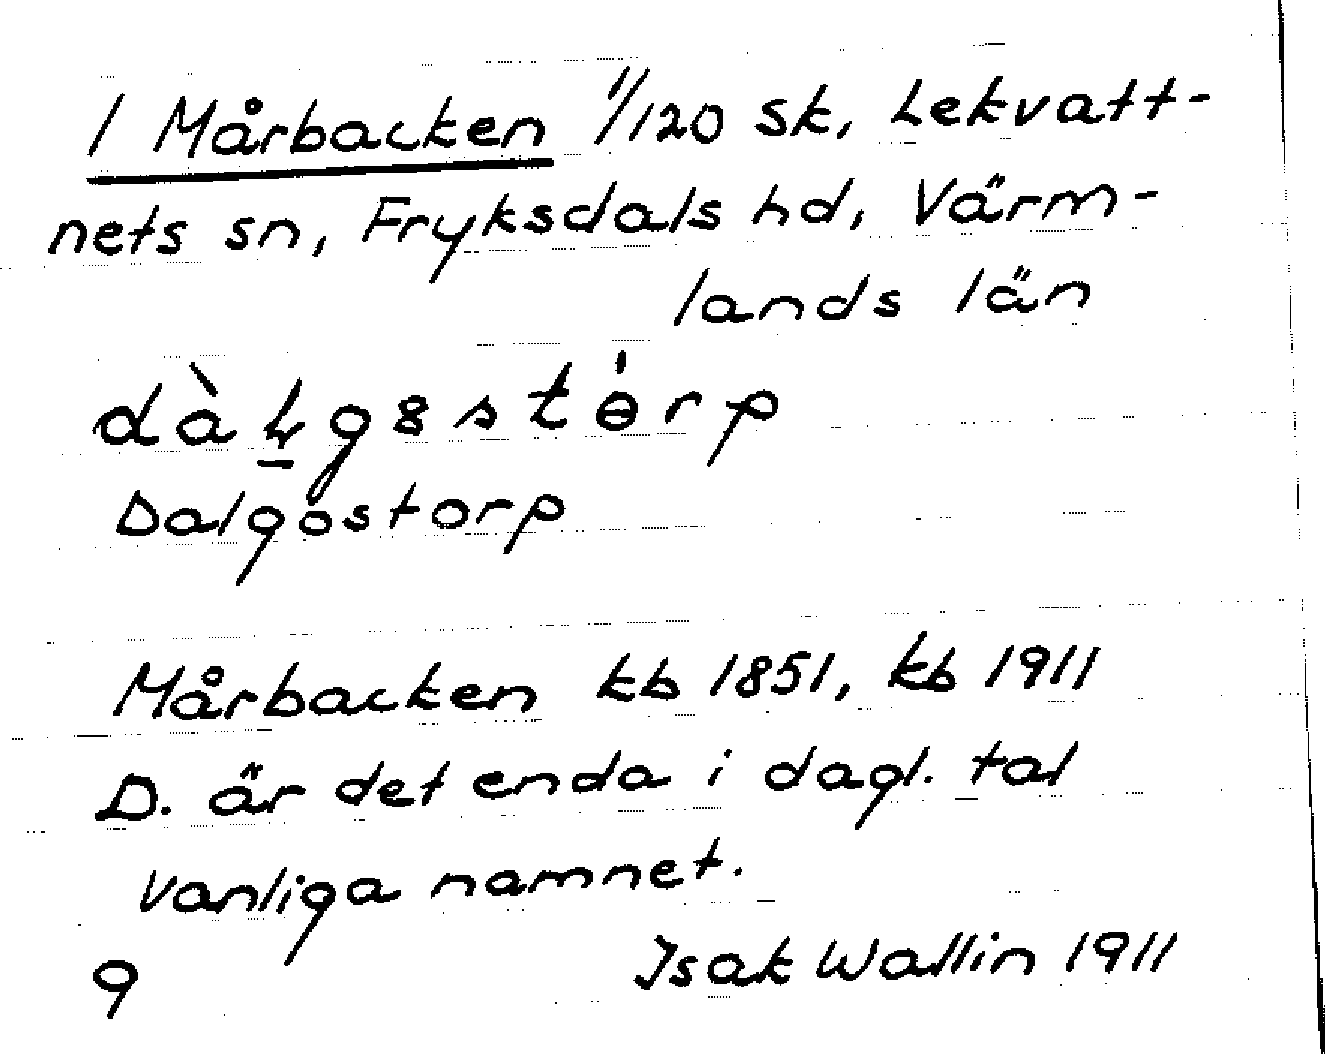 1 Mårbacken 1/120 sk, Lekvatt-
nets sn, Fryksdals hd, Värm-
lands län
Dalgostorp
Mårbacken kb 1851, kb 1911
D. är det enda i dagl. tal
vanliga namnet.
9 Isak Wallin 1911